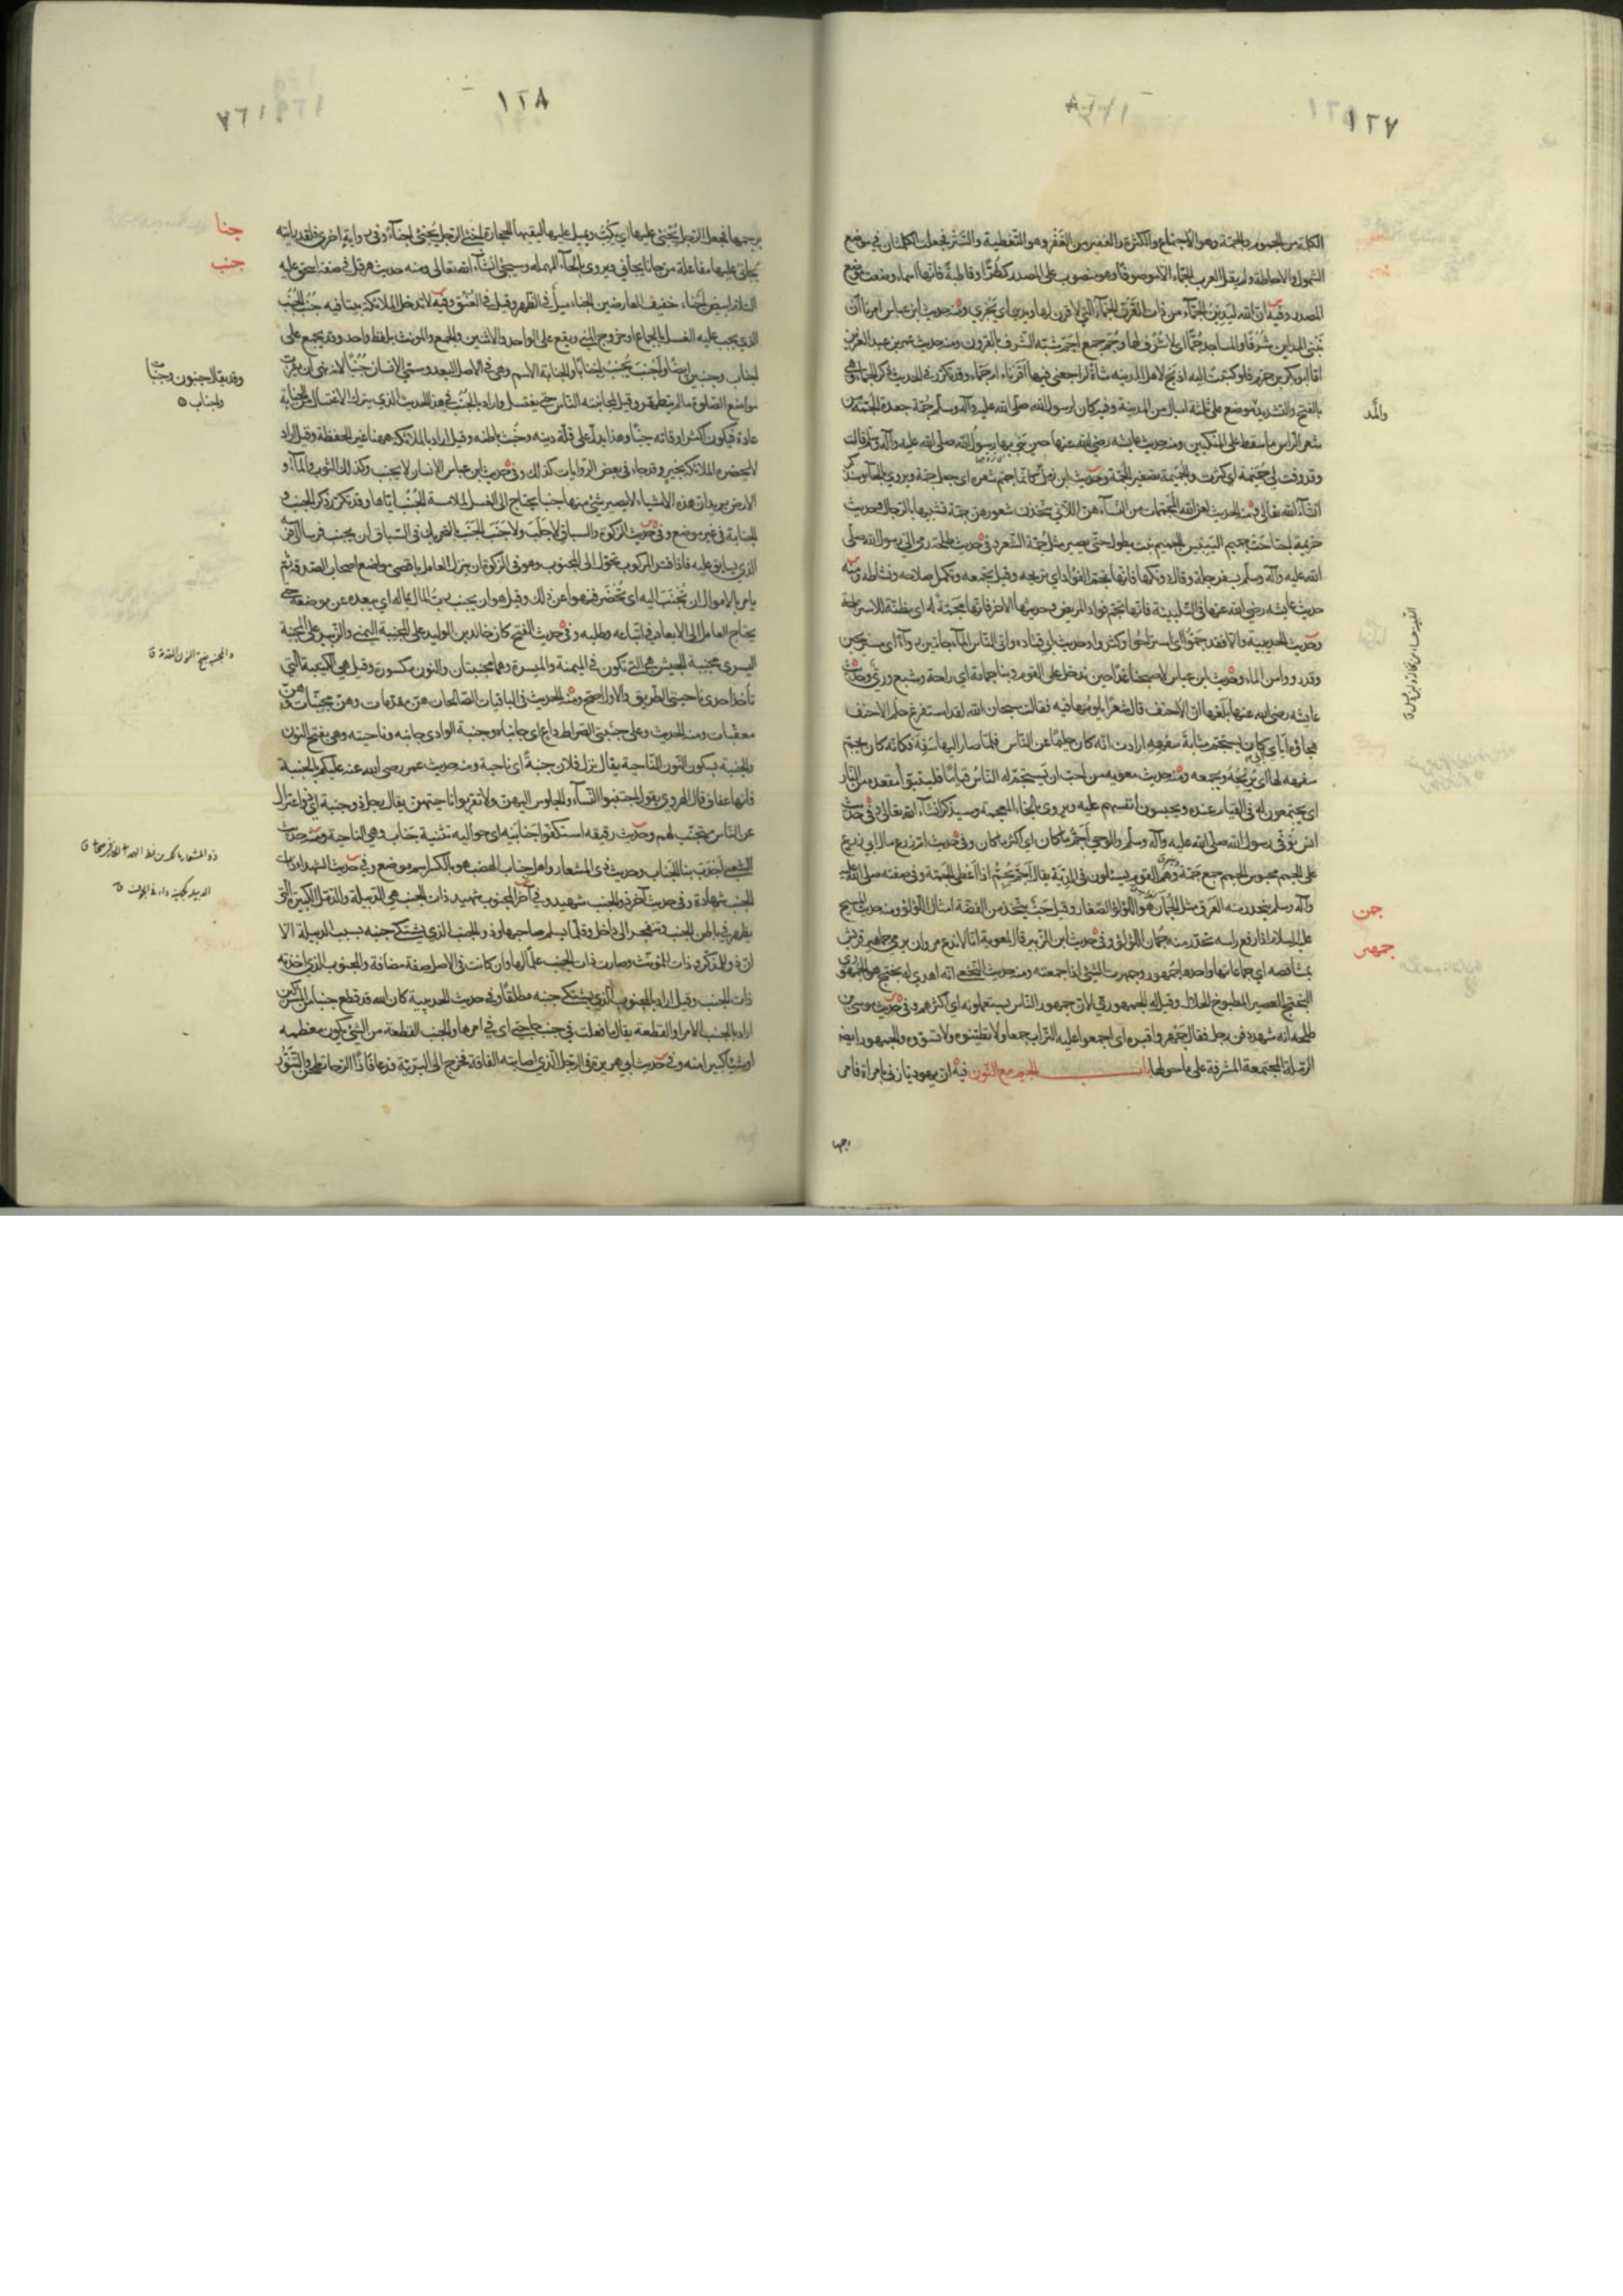 ١٢٧
الكلمة من الجموم والجمّة وهو الاجتماع والكثرة والغفير من الغَفْر وهو التغطية والستر فجعلت الكلمتان في موضع
الشمول والاحاطة ولم يقل العرب الجمّاء الا موصوفا وهو منصوب على المصدر كطُرًّا وقاطبةً فانها اسماء وضعت موضع
المصدر وفيه ان الله ليَدِيَنّ الجمّاء من ذات القرن الجمّاء التي لا قرن لها ويدي اي يجزي ومنه حديث ابن عباس امرنا ان
نَبْني المداين شُرَفًا والمساجد جُمًّا اي لا شُرَف لها وجُمّ جمع اجمّ شبّه الشُّرف بالقرون ومنه حديث عمر بن عبد العزيز
امّا ابو بكر بن حزم فلو كتبت اليه اذبح لاهل المدينة شاة لراجعني فيها أقرناء ام جمّاء وقد تكرر في الحديث ذكر الجمّاء وهي
بالفتح والتشديد موضع على ثلثة اميال من المدينة وفيه كان لرسول الله صلى الله عليه وآله وسلم جُمّة جعدة الجمّة من
شعر الراس ما سقط على المنكبين ومنه حديث عايشه رضي الله عنها حين بنى بها رسول الله صلى الله عليه وآله وسلم قالت
وقد وفت لي جُمَيمة اي كثرت والجميمة تصغير الجمّة وحديث ابن زمل كانما جمّم شعره اي جعل جمّة ويروى بالحاء وسيذكر
انشاء الله تعالى ومنه الحديث لعن الله المجمّمات من النساء هن اللاتي يتخذن شعورهن جمّة تشبيها بالرجال وحديث
خزيمة اجتاحت جميم اليبيس الجميم نبت يطول حتى يصير مثل جُمّة الشعر وفي حديث طلحة رمى اليّ رسول الله صلى
الله عليه وآله وسلم بسفرجلة وقال دونكها فانها تجمّ الفؤاد اي تريحه وقيل تجمعه وتكمل صلاحه ونشاطه ومنه
حديث عايشه رضي الله عنها في التلبينة فانها تجمّ فواد المريض وحديثها الاخر فانها مجمّة له اي مظنّة للاستراحة
وحديث الحديبية والا فقد جمّوا اي استراحوا وكثروا وحديث ابي قتاده واتى الناس الماء جامّين رواءً اي مستريحين
وقد رووا من الماء وحديث ابن عباس لاصبحنا غدًا حين ندخل على القوم وبنا جمامة اي راحة وشبع وريّ وحديث
عايشه رضي الله عنها بلغها ان الاحنف قال شعرًا يلومها فيه فقالت سبحان الله لقد استفرغ حلم الاحنف
هجاؤه اياي ألي كان يستجمّ مثابةَ سفهه ارادت انه كان حليمًا عن الناس فلمّا صار اليها سَفِهَ فكانه كان يجمّ
سفهه لها اي يُريحُهُ ويجمعه ومنه حديث معويه من احبّ ان يَستجمّ له الناسُ قيامًا فليتبوّأ مقعده من النار
اي يجتمعون له في القيام عنده ويحبسون انفسهم عليه ويروى بالخاء المعجمة وسيذكر انشاء الله تعالى وفي حديث
انس توفي رسول الله صلى الله عليه وآله وسلم والوحي أجمّ ما كان اي اكثر ما كان وفي حديث ام زرع مال ابي زرع
على الجمم محبوس الجمم جمع جمّة وهم القوم يسئلون في الدّية يقال اجمّ يُجمّ اذا اعطى الجمّة وفي صفته صلى الله عليه
وآله وسلم يتحدر منه العرق مثل الجمان هو اللؤلؤ الصغار وقيل حَبّ يتّخذ من الفضّة امثال اللؤلؤ ومنه حديث المسيح
عليه السلام اذا رفع راسه تحدّر منه جُمان اللؤلؤ وفي حديث ابن الزبير قال لمعوية انا لا ندع مروان يرمي جماهير قريش
بمشاقصه اي جماعاتها واحدها جُمهور وجمهرت الشيء اذا جمعته ومنه حديث النخعي انه اهدي له بختج هو الجمهوري
البختج العصير المطبوخ الحلال وقيل له الجمهوري لان جمهور الناس يستعملونه اي اكثرهم وفي حديث موسى بن
طلحه انه شهد دفن رجل فقال جَمْهِروا قبره اي اجمعوا عليه التراب جمعا ولا تطيّنوه ولا تسوّوه والجمهور ايضا
الرملة المجتمعة المشرفة على ما حولها باب الجيم مع النون فيه ان يهوديا زنى بامراة فامر
برجمها
والمَّد
جمن
جمهر
١٢٨
برجمها فجعل الرجل يُجنئ عليها اي يُكبّ ويميل عليها ليقيها الحجارة اجنأ الرجل يُجنئ اجناءً وفي رواية اخرى فلقد رايته
يُجانئ عليها مفاعلة من جانأ يجانئ ويروى بالحاء المهمله وسيجئ انشاء الله تعالى ومنه حديث هرقل في صفة اسحق عليه
السلام ابيض أجنأ، خفيف العارضين الجناء ميل في الظهر وقيل في العنق وفيه لا تدخل الملائكة بيتا فيه جُنُب الجُنُب
الذي يجب عليه الغسل بالجماع وخروج المني ويقع على الواحد والاثنين والجمع والمونث بلفظ واحد وقد يجمع على
اجناب وجنبين واجنب يجنب اجنابا والجنابة الاسم وهي في الاصل البعد وسمي الانسان جُنُبًا لانه نهي ان يقرب
مواضع الصلوة ما لم يتطهر وقيل لمجانبته الناس حتى يغتسل واراد بالجُنُب في هذا الحديث الذي يترك الاغتسال من الجنابة
عادة فيكون اكثر اوقاته جنبًا وهذا يدل على قلّة دينه وخُبث باطنه وقيل اراد بالملائكة ههنا غير الحفظة وقيل اراد
لا تحضره الملائكة بخير وقد جاء في بعض الروايات كذلك وفي حديث ابن عباس الانسان لا يجنب وكذلك الثوب والماء و
الارض يريد ان هذه الاشياء لا يصير شيء منها جنبا يحتاج الى الغسل لملامسة الجُنُب اياها وقد تكرر ذكر الجنب و
الجنابة في غير موضع وفي حديث الزكوة والسباق لا جَلَبَ ولا جَنَبَ الجَنَبُ بالتحريك في السباق ان يجنب فرسا الى فرسه
الذي يسابق عليه فاذا فتر المركوب تحوّل الى المجنوب وهو في الزكوة ان ينزل العامل باقصى مواضع اصحاب الصدقة ثم
يامر بالاموال ان تُجنَبَ اليه اي تُحضَر فنهوا عن ذلك وقيل هو ان يجنب ربّ المال بماله اي يبعده عن موضعه حتى
يحتاج العامل الى الابعاد في اتباعه وطلبه وفي حديث الفتح كان خالد بن الوليد على المجنبة اليمنى والزبير على المجنبة
اليسرى مجنبة الجيش هي التي تكون في الميمنة والميسرة وهما مجنبتان والنون مكسورة وقيل هي الكتيبة التي
تاخذ احدى ناحيتي الطريق والاول اصح ومنه الحديث في الباقيات الصالحات هنّ مقدمات وهنّ مجنّبات وهنّ
معقّبات ومنه الحديث وعلى جنبتي الصراط داعٍ اي جانباه وجنبة الوادي جانبه وناحيته وهي بفتح النون
والجنبة بسكون النون الناحية يقال نزل فلان جنبةً اي ناحية ومنه حديث عمر رضي الله عنه عليكم بالجنبة
فانها عفاف قال الهروي يقول اجتنبوا النساء والجلوس اليهن ولا تقربوا ناحيتهن يقال رجل ذو جنبة اي ذو اعتزال
عن الناس متجنّب لهم وحديث رقيقه استكفّوا جنابَيه اي حواليه تثنية جناب وهي الناحية ومنه حديث
الشعبي اجدب بنا الجناب وحديث ذي المشعار واهل جناب الهضب هو بالكسر اسم موضع وفي حديث الشهداء ذات
الجنب شهادة وفي حديث آخر ذو الجنب شهيد وفي آخر المجنوب شهيد ذات الجنب هي الدّبيلة والدّمّل الكبيرة التي
يظهر في باطن الجنب وتنفجر الى داخل وقلّما يسلم صاحبها وذو الجنب الذي يشتكي جنبه بسبب الدبيلة الا
ان ذو للمذكر وذات للمونّث وصارت ذات الجنب علمًا لها وان كانت في الاصل صفة مضافة والمجنوب الذي اخذته
ذات الجنب وقيل اراد بالمجنوب الذي يشتكي جنبه مطلقًا وفي حديث الحديبية كان الله قد قطع جنبا من المشركين
اراد بالجنب الامر او القطعة يقال ما فعلت في جنب حاجتي اي في امرها والجنب القطعة من الشيء يكون معظمه
او شيئا كثيرا منه وفي حديث ابي هريرة في الرجل الذي اصابته الفاقة فخرج الى البرّيّة فدعا فاذا الرحا تطحن والتنّور
جنا
جنب
وقد يقال جنبون وجنبات
واجناب